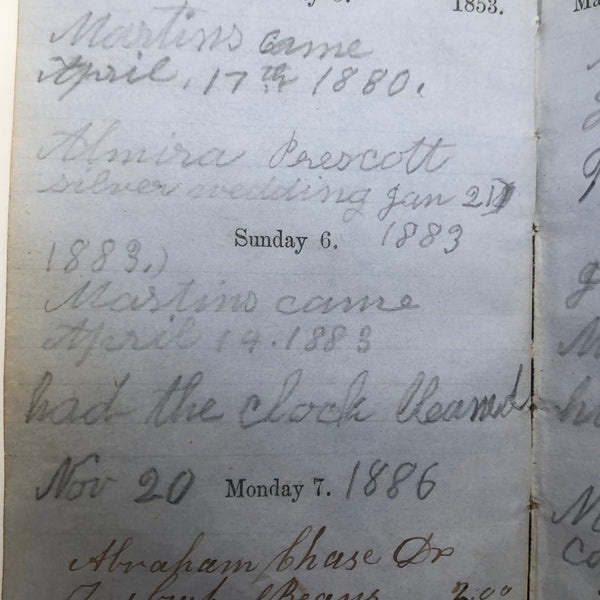 1853.
Martins came
April. 17th 1880.
Almira Prescott
silver wedding Jan 21
Sunday 6. 1883
1883.)
Martins came
April 14. 1883
had the clock cleaned
Nov 20 Monday 7. 1886
Abraham Chase Dr
Beans 2.00